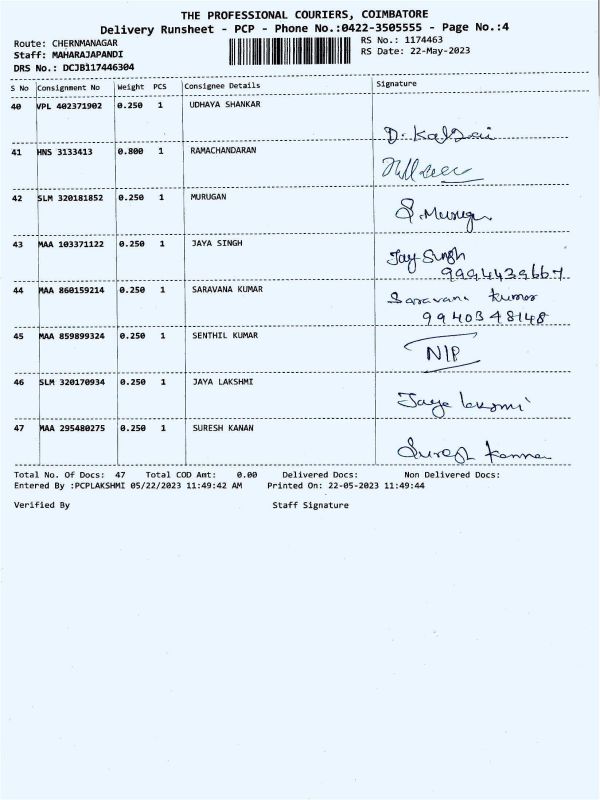 THE PROFESSIONAL COURIERS, COIMBATORE
Delivery Runsheet - PCP - Phone No.:0422-3505555 - Page No.:4
Route: CHERNMANAGAR
RS No.: 1174463
Staff: MAHARAJAPANDI
RS Date: 22-May-2023
DRS No.: DCJB117446304
S No Consignment No Weight PCS Consignee Details Signature
40 VPL 402371902 0.250 1 UDHAYA SHANKAR
41 HNS 3133413 0.800 1 RAMACHANDARAN
42 SLM 320181852 0.250 1 MURUGAN
S.Murugan
43 MAA 103371122 0.250 1 JAYA SINGH
Jay Singh
9994439667
44 MAA 860159214 0.250 1 SARAVANA KUMAR
Saravana kumar
9940348148
45 MAA 859899324 0.250 1 SENTHIL KUMAR
N/P
46 SLM 320170934 0.250 1 JAYA LAKSHMI
Jaya laksmi
47 MAA 295480275 0.250 1 SURESH KANAN
Suresh kannan
Total No. Of Docs: 47 Total COD Amt: 0.00 Delivered Docs: Non Delivered Docs:
Entered By :PCPLAKSHMI 05/22/2023 11:49:42 AM Printed On: 22-05-2023 11:49:44
Verified By Staff Signature